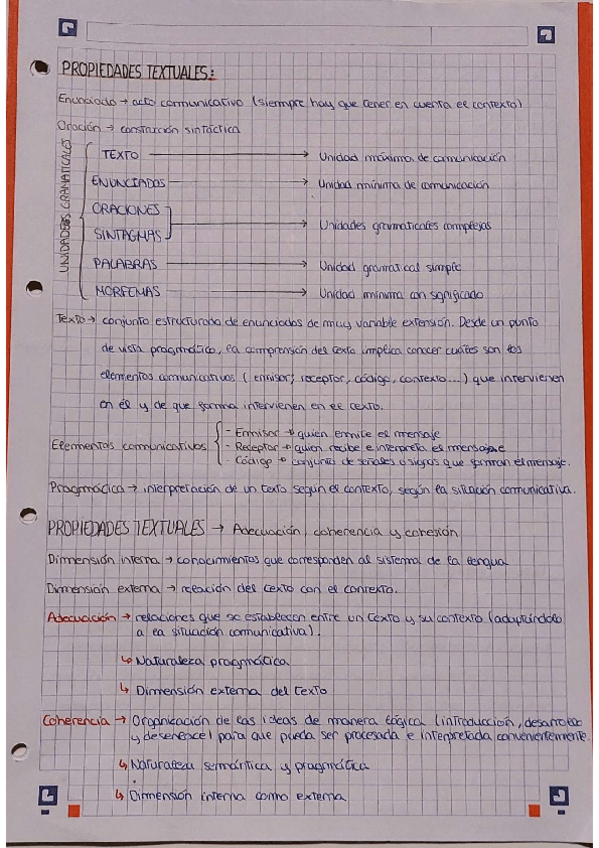 PROPIEDADES TEXTUALES:
Enunciado → acto comunicativo (siempre hay que tener en cuenta el contexto)
Oración → construcción sintáctica
UNIDADES GRAMATICALES
TEXTO → Unidad máxima de comunicación
ENUNCIADOS → Unidad mínima de comunicación
ORACIONES
SINTAGMAS → Unidades gramaticales complejas
PALABRAS → Unidad gramatical simple
MORFEMAS → Unidad mínima con significado
Texto → conjunto estructurado de enunciados de muy variable extensión. Desde un punto
de vista pragmático, la comprensión del texto implica conocer cuáles son los
elementos comunicativos (emisor, receptor, código, contexto...) que intervienen
en él y de que forma intervienen en el texto.
Elementos comunicativos
- Emisor → quien emite el mensaje
- Receptor → quien recibe e interpreta el mensaje
- Código → conjunto de señales o signos que forman el mensaje.
Pragmática → interpretación de un texto según el contexto, según la situación comunicativa.
PROPIEDADES TEXTUALES → Adecuación, coherencia y cohesión
Dimensión interna → conocimientos que corresponden al sistema de la lengua
Dimensión externa → relación del texto con el contexto.
Adecuación → relaciones que se establecen entre un texto y su contexto (adaptándolo
a la situación comunicativa).
↳ Naturaleza pragmática
↳ Dimensión externa del texto
Coherencia → Organización de las ideas de manera lógica (introducción, desarrollo
y desenlace) para que pueda ser procesada e interpretada convenientemente.
↳ Naturaleza semántica y pragmática
↳ Dimensión interna como externa